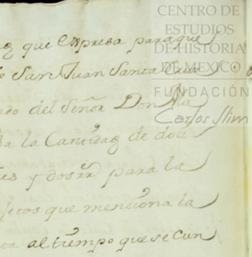 que expresa para que
San Juan Santa
do del Señor Don
la Cantidad de dos
y dosra para la
fectos que menciona la
al tiempo que se Cun
CENTRO DE
ESTUDIOS
DE HISTORIA
DE MEXICO
FUNDACIÓN
Carlos Slim